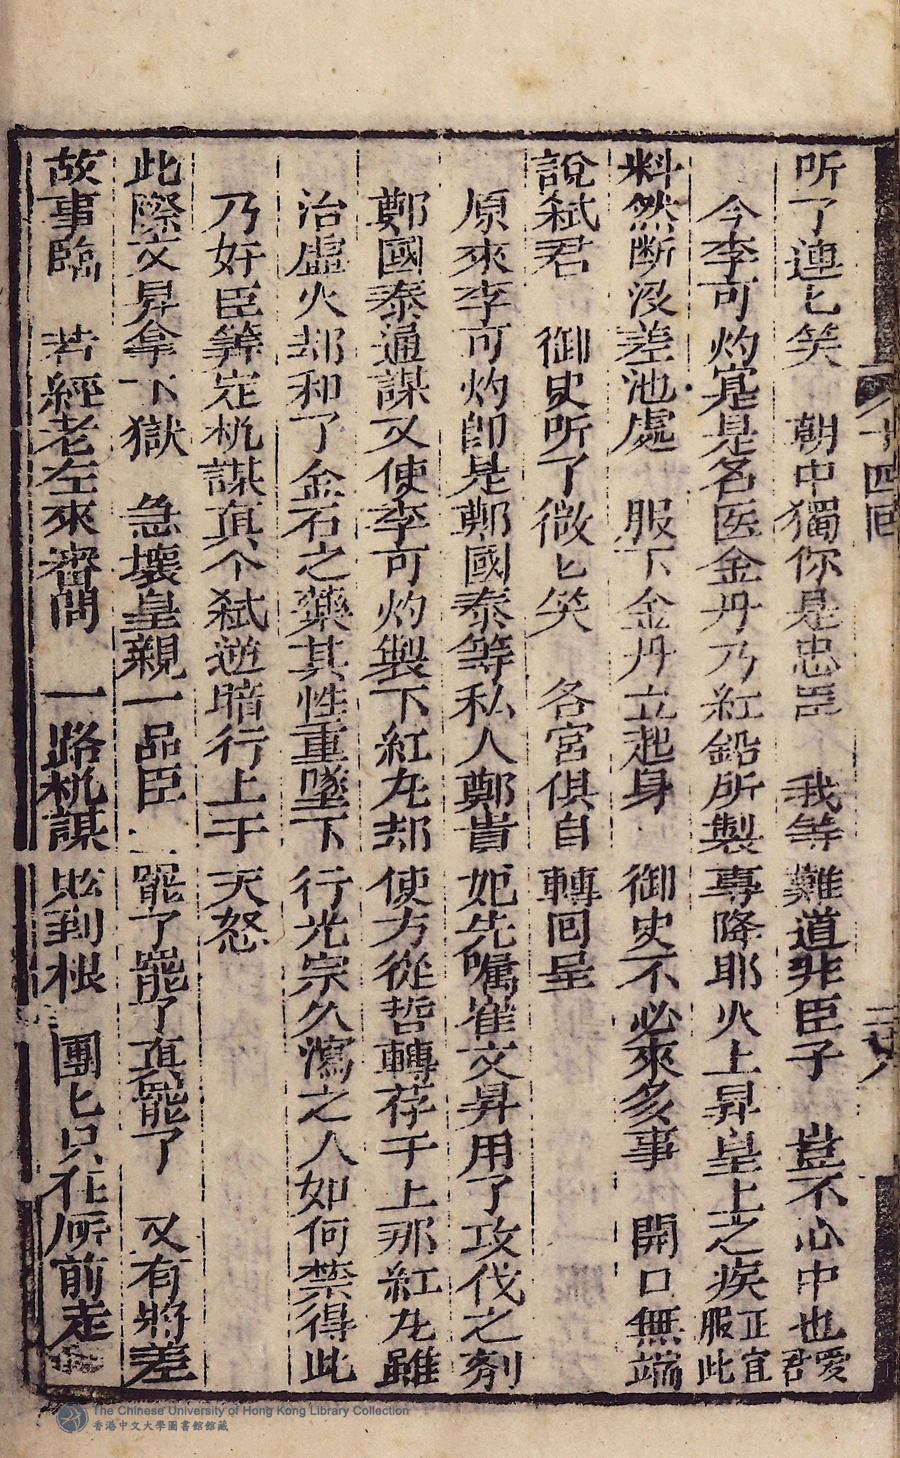 听了連匕笑　朝中獨你是忠臣　我等難道非臣子　豈不心中也愛君
今李可灼寔是名医金丹乃紅鉛所製專降耶火上昇皇上之疾正宜服此
料然断没差池處　服下金丹立起身　御史不必來多事　開口無端
說弒君　御史听了微匕笑　各宮俱自轉回呈
原來李可灼卽是鄭國泰等私人鄭貴妃先嘱崔文昇用了攻伐之剤
鄭國泰通謀又使李可灼製下紅丸却使方從哲轉荐于上那紅丸雖
治虛火却和了金石之藥其性重墜下行光宗久瀉之人如何禁得此
乃奸臣筭定机謀真个弒逆暗行上于天怒
此際文昇拿下獄　急壞皇親一品臣　罷了罷了真罷了　又有將差
故事臨　若經老左來審問　一路机謀敗到根　團匕只在所前走
十四囘
The Chinese University of Hong Kong Library Collection
香港中文大學圖書館館藏